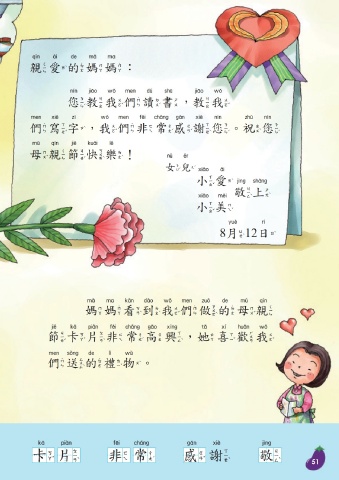 qīn ài de mā ma
親愛的媽媽：
nín jiāo wǒ men dú shū jiāo wǒ
您教我們讀書，教我
men xiě zì wǒ men fēi cháng gǎn xiè nín zhù nín
們寫字，我們非常感謝您。祝您
mǔ qīn jié kuài lè
母親節快樂！
nǚ ér
女兒
xiǎo ài
小愛
jìng shàng
敬上
xiǎo měi
小美
yuè rì
8月12日
mā ma kàn dào wǒ men zuò de mǔ qīn
媽媽看到我們做的母親
jié kǎ piàn fēi cháng gāo xìng tā xǐ huān wǒ
節卡片非常高興，她喜歡我
men sòng de lǐ wù
們送的禮物。
kǎ piàn fēi cháng gǎn xiè jìng
卡片 非常 感謝 敬
51